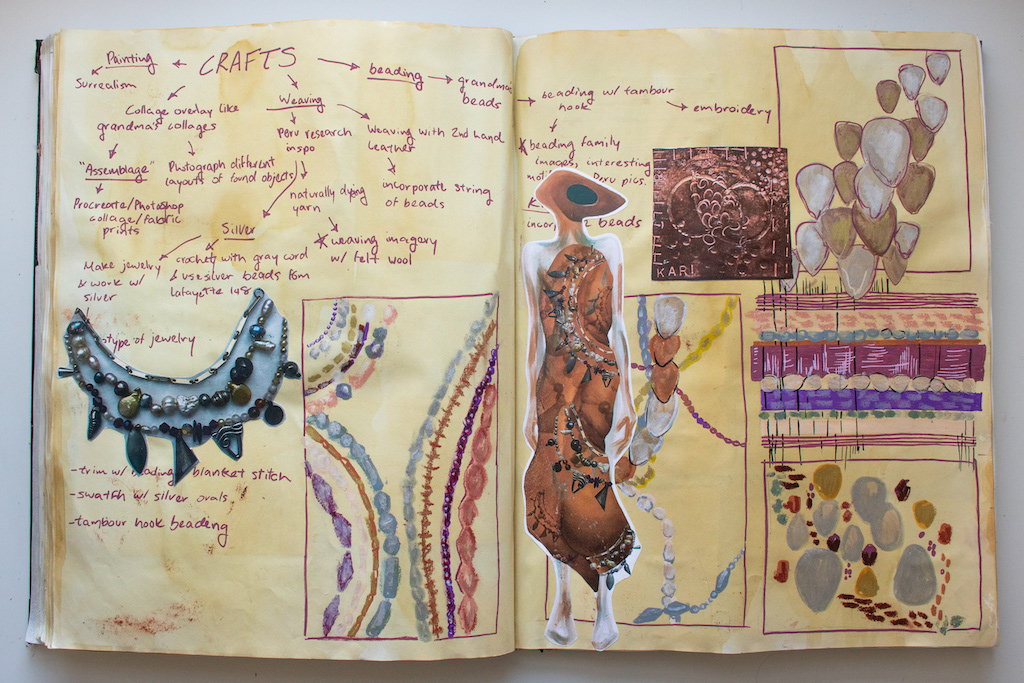 CRAFTS
Painting
Surrealism
Collage overlay like
grandma's collages
"Assemblage"
Photograph different
layouts of found objects
Procreate/Photoshop
collage/fabric
prints
Weaving
Peru research
inspo
naturally dying
yarn
* weaving imagery
w/ felt wool
Weaving with 2nd hand
leather
incorporate string
of beads
Silver
Make jewelry
& work w/
silver
crochet with gray cord
& use silver beads from
Lafayette 148
-type of jewelry
-trim w/ beading blanket stitch
-swatch w/ silver ovals
-tambour hook beading
beading
grandma's
beads
beading w/ tambour
hook
embroidery
* beading family
images, interesting
Peru pics.
beads
KARI